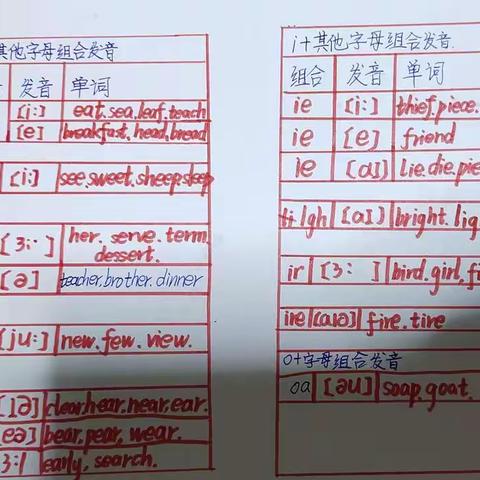 其他字母组合发音
发音 单词
[i:] eat.sea.leaf.teach
[e] breakfast.head.bread
[i:] see.sweet.sheep.sleep
[ɜ:] her. serve. term.
dessert.
[ə] teacher.brother.dinner
[ju:] new. few. view.
[ɪə] clear.hear.near.ear.
[eə] bear.pear, wear.
early, search.
i+其他字母组合发音.
组合 发音 单词
ie [i:] thief.piece.
ie [e] friend
ie [aɪ] Lie.die.pie
[aɪ] bright.
ir [ɜ: ] bird.girl.
ire [aɪə] fire.tire
o+字母组合发音
oa [əu] soap.goat.